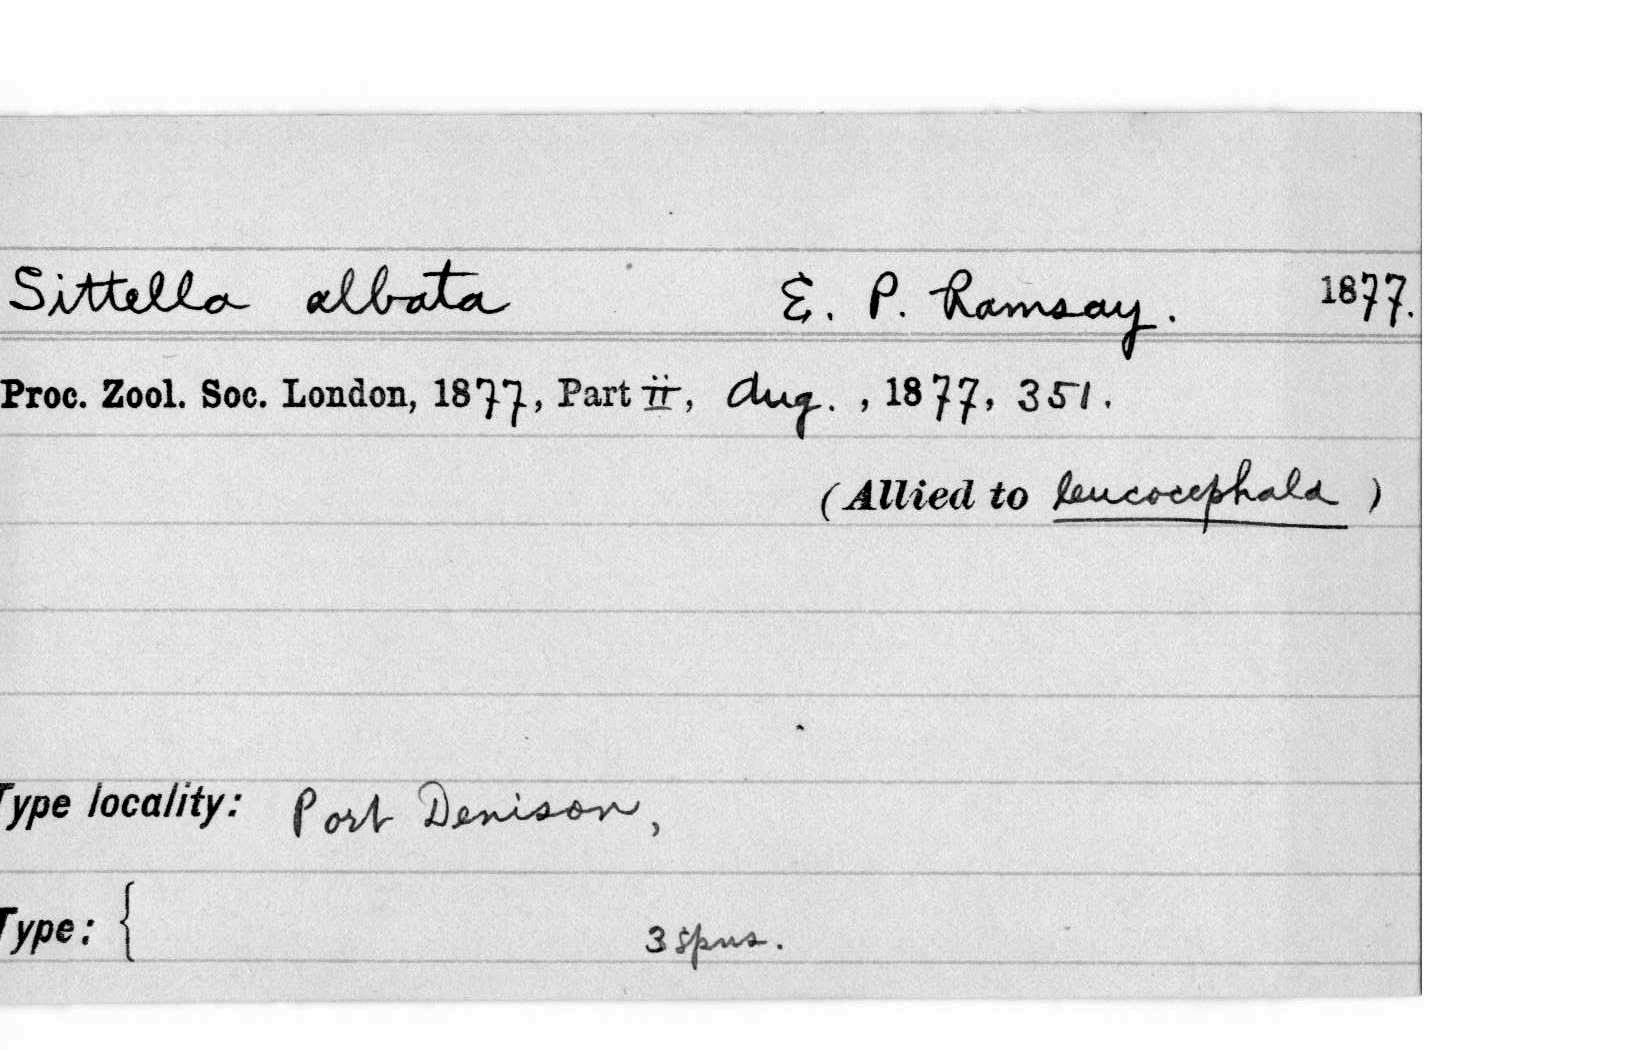 Sittella albata E. P. Ramsay. 1877.
Proc. Zool. Soc. London, 1877, Part ii, Aug. , 1877, 351.
(Allied to leucocephala )
Type locality: Port Denison,
Type: { 3 spns.